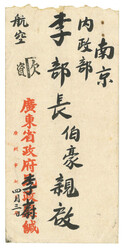 南京
內政部
李部長伯豪親啟
航空
廣東省政府李緘
四月三日